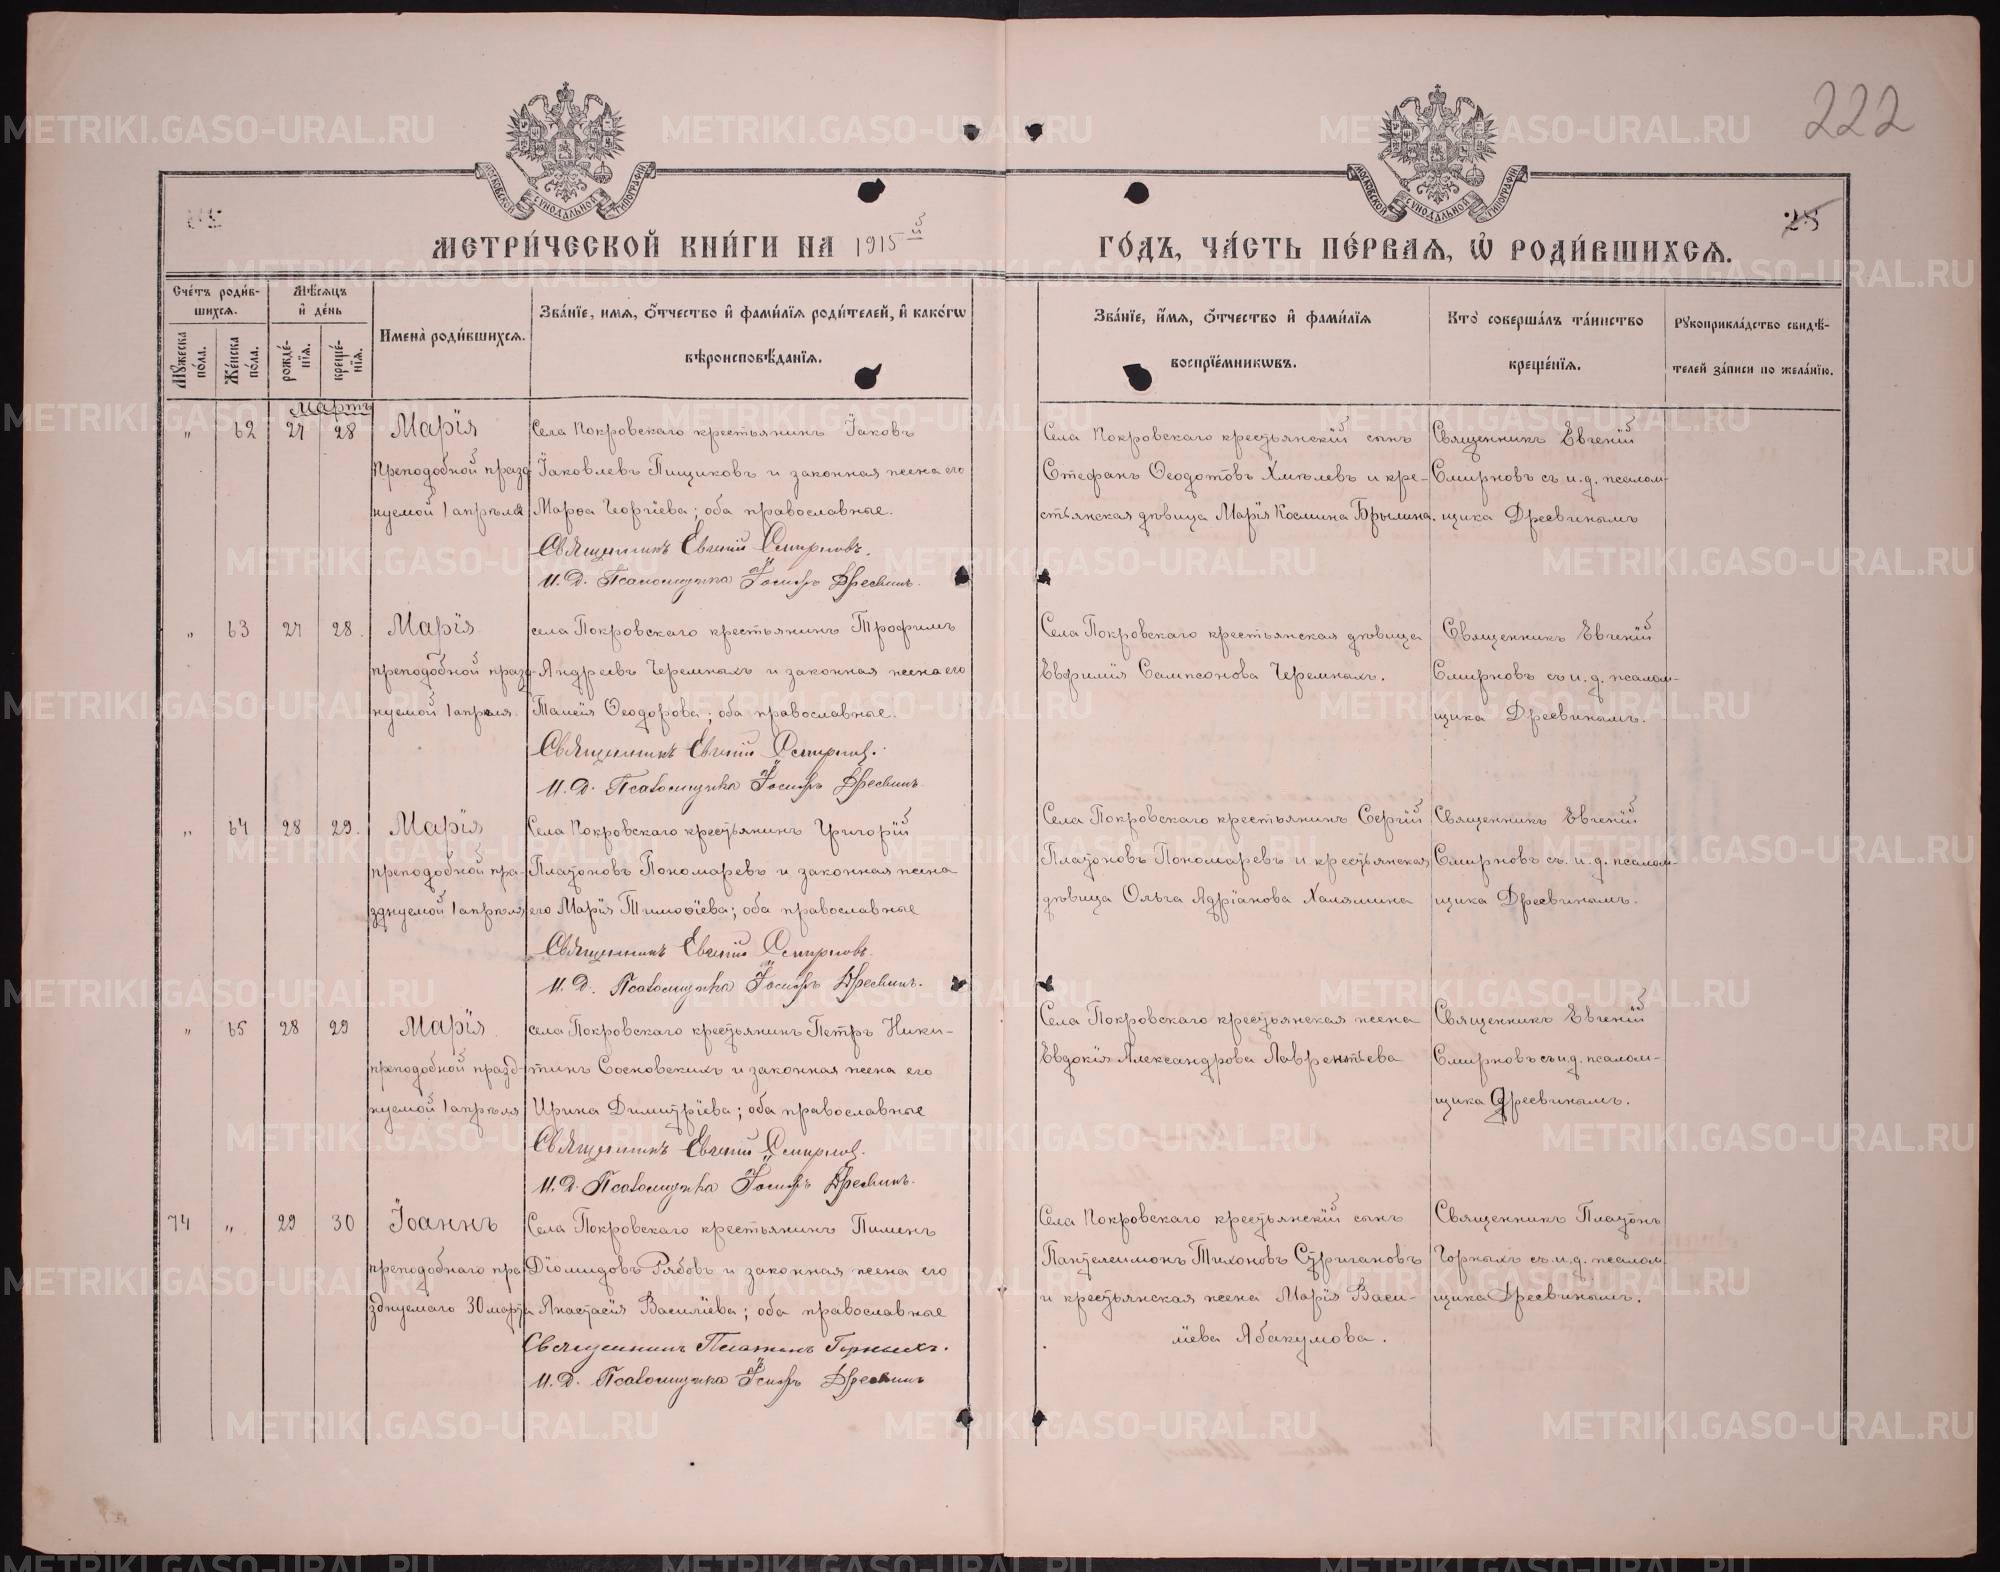 222
МОСКОВСКОЙ СѴНОДАЛЬНОЙ ТИПОГРАФІИ
МОСКОВСКОЙ СѴНОДАЛЬНОЙ ТИПОГРАФІИ
25
МЕТРИ́ЧЕСКОЙ КНИ́ГИ НА 1915
ГО́ДЪ, ЧА́СТЬ ПЕ́РВАѦ, Ѡ҆ РОДИ́ВШИХСѦ.
Сче́тъ роди́в-
шихсѧ.
Мꙋжеска по́ла.
Же́нска по́ла.
Мѣ́сѧцъ
и҆ де́нь
рожде́-
нїѧ.
креще́-
нїѧ.
Имена̀ роди́вшихсѧ.
Зва́нїе, имѧ, ѻ҆́тчество и҆ фами́лїѧ роди́телей, и҆ како́гѡ
вѣроисповѣ́данїѧ.
Зва́нїе, и҆́мѧ, ѻ҆́тчество и҆ фами́лїѧ
воспрїе́мникѡвъ.
Кто̀ соверша́лъ та́инство
креще́нїѧ.
Рꙋкоприкла́дство свидѣ́-
телей за́писи по жела́нїю.
Мартъ
" 62 27 28 Марія
Преподобной празд
нуемой 1 апрѣля
Села Покровскаго крестьянинъ Іаковъ
Іаковлевъ Пищиковъ и законная жена его
Марѳа Георгіева; оба православные.
Священникъ Евгеній Смирновъ.
И. д. Псаломщика Іосифъ Дресвинъ.
Села Покровскаго крестьянскій сынъ
Стефанъ Ѳеодотовъ Хмѣлевъ и кре-
стьянская дѣвица Марія Космина Брылина.
Священникъ Евгеній
Смирновъ съ и. д. псалом-
щика Дресвинымъ
" 63 27 28. Марія
преподобной празд-
нуемой 1 апрѣля.
села Покровскаго крестьянинъ Трофимъ
Андреевъ Черемныхъ и законная жена его
Таисія Ѳеодорова; оба православные.
Священникъ Евгеній Смирновъ.
И. д. Псаломщика Іосифъ Дресвинъ.
Села Покровскаго крестьянская дѣвица
Евфимія Сампсонова Черемныхъ.
Священникъ Евгеній
Смирновъ съ и. д. псалом-
щика Дресвинымъ.
" 64 28 29. Марія
преподобной пра-
зднуемой 1 апрѣля
Села Покровскаго крестьянинъ Григорій
Платоновъ Пономаревъ и законная жена
его Марія Тимоѳіева; оба православные
Священникъ Евгеній Смирновъ.
И. д. Псаломщика Іосифъ Дресвинъ.
Села Покровскаго крестьянинъ Сергій
Платоновъ Пономаревъ и крестьянская
дѣвица Ольга Адріанова Халямина
Священникъ Евгеній
Смирновъ съ. и. д. псалом-
щика Дресвинымъ.
" 65 28 29 Марія
преподобной празд-
нуемой 1 апрѣля
села Покровскаго крестьянинъ Петръ Ники-
тинъ Сосновскихъ и законная жена его
Ирина Димитріева; оба православные
Священникъ Евгеній Смирновъ.
И. д. Псаломщика Іосифъ Дресвинъ.
Села Покровскаго крестьянская жена
Евдокія Александрова Лаврентьева
Священникъ Евгеній
Смирновъ съ и. д. псалом-
щика Дресвинымъ.
74 " 29 30 Іоаннъ
преподобнаго пра
зднуемаго 30 марта
Села Покровскаго крестьянинъ Пименъ
Діомидовъ Рябовъ и законная жена его
Анастасія Василіева; оба православные
Священникъ Платонъ Горныхъ.
И. д. Псаломщика Іосифъ Дресвинъ
Села Покровскаго крестьянскій сынъ
Пантелеимонъ Тихоновъ Стригановъ
и крестьянская жена Марія Васи-
ліева Абакумова.
Священникъ Платонъ
Горныхъ съ и. д. псалом-
щика Дресвинымъ.
METRIKI.GASO-URAL.RU